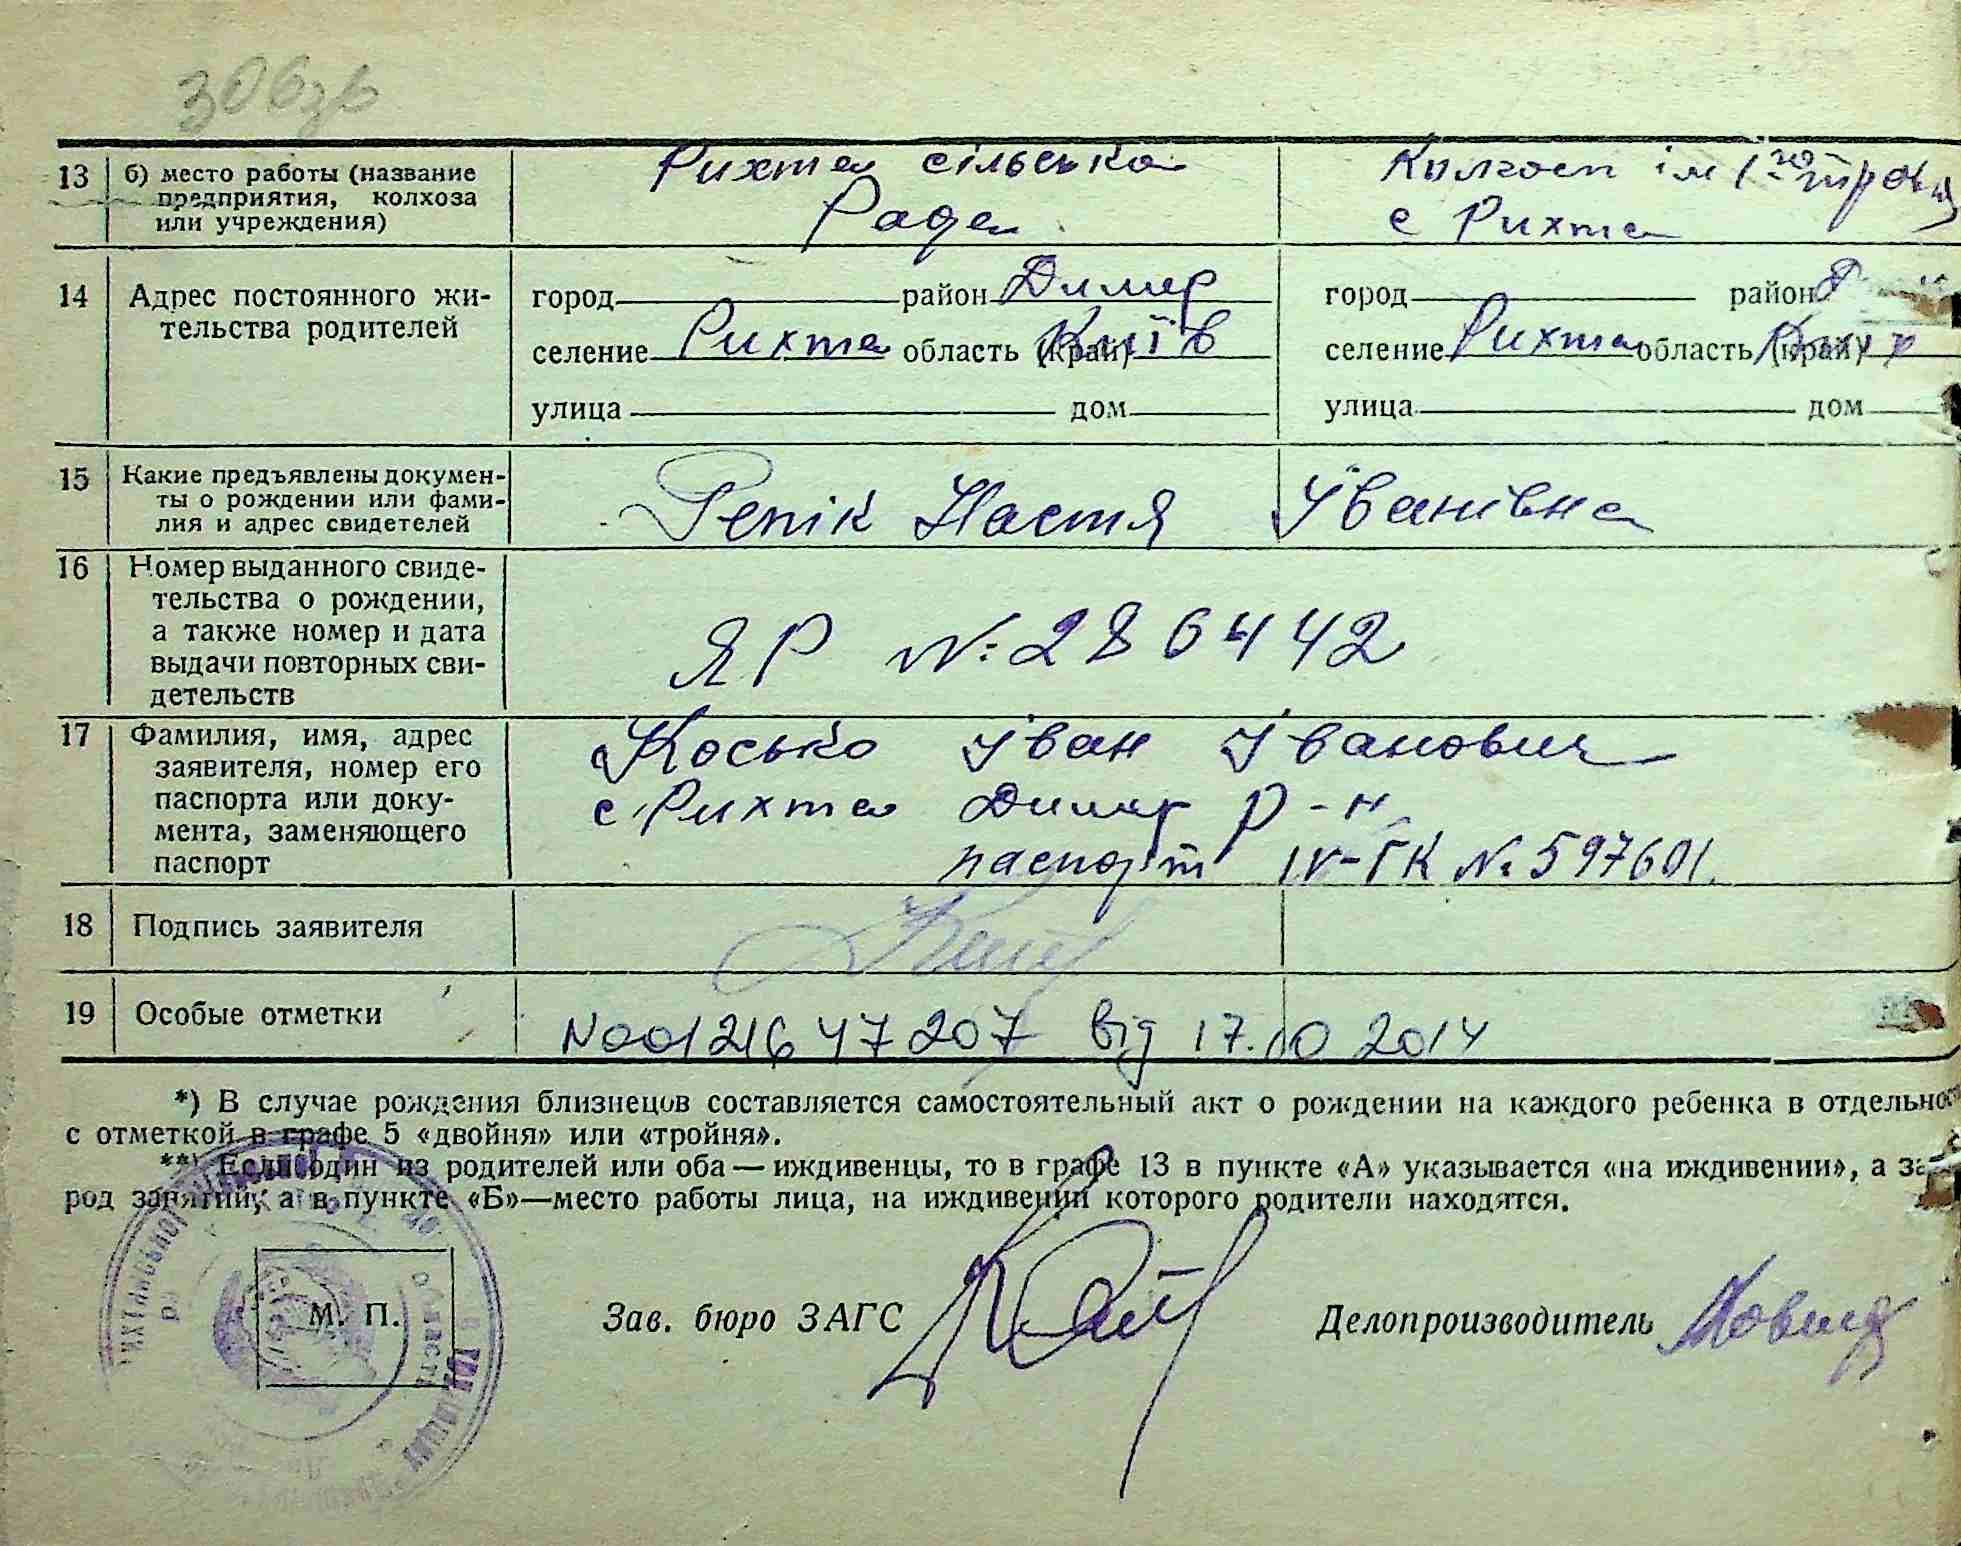 306зв
13 б) место работы (название предприятия, колхоза или учреждения)
Рихта сільська Рада
Колгосп ім
с Рихта
14 Адрес постоянного жительства родителей
город район Димер
селение Рихта область (край) Київ
улица дом
город район
селение Рихта область (край)
улица дом
15 Какие предъявлены документы о рождении или фамилия и адрес свидетелей
Репік Настя Іванівна
16 Номер выданного свидетельства о рождении, а также номер и дата выдачи повторных свидетельств
ЯР №286442
17 Фамилия, имя, адрес заявителя, номер его паспорта или документа, заменяющего паспорт
Косько Іван Іванович
с Рихта Димер р-н
паспорт IV-ГК № 597601.
18 Подпись заявителя
19 Особые отметки
N00121647207 від 17.10 2014
*) В случае рождения близнецов составляется самостоятельный акт о рождении на каждого ребенка в
с отметкой в графе 5 «двойня» или «тройня».
**) Если один из родителей или оба — иждивенцы, то в графе 13 в пункте «А» указывается «на иждивении», а
род занятий, а в пункте «Б»—место работы лица, на иждивении которого родители находятся.
М. П.
Зав. бюро ЗАГС
Делопроизводитель